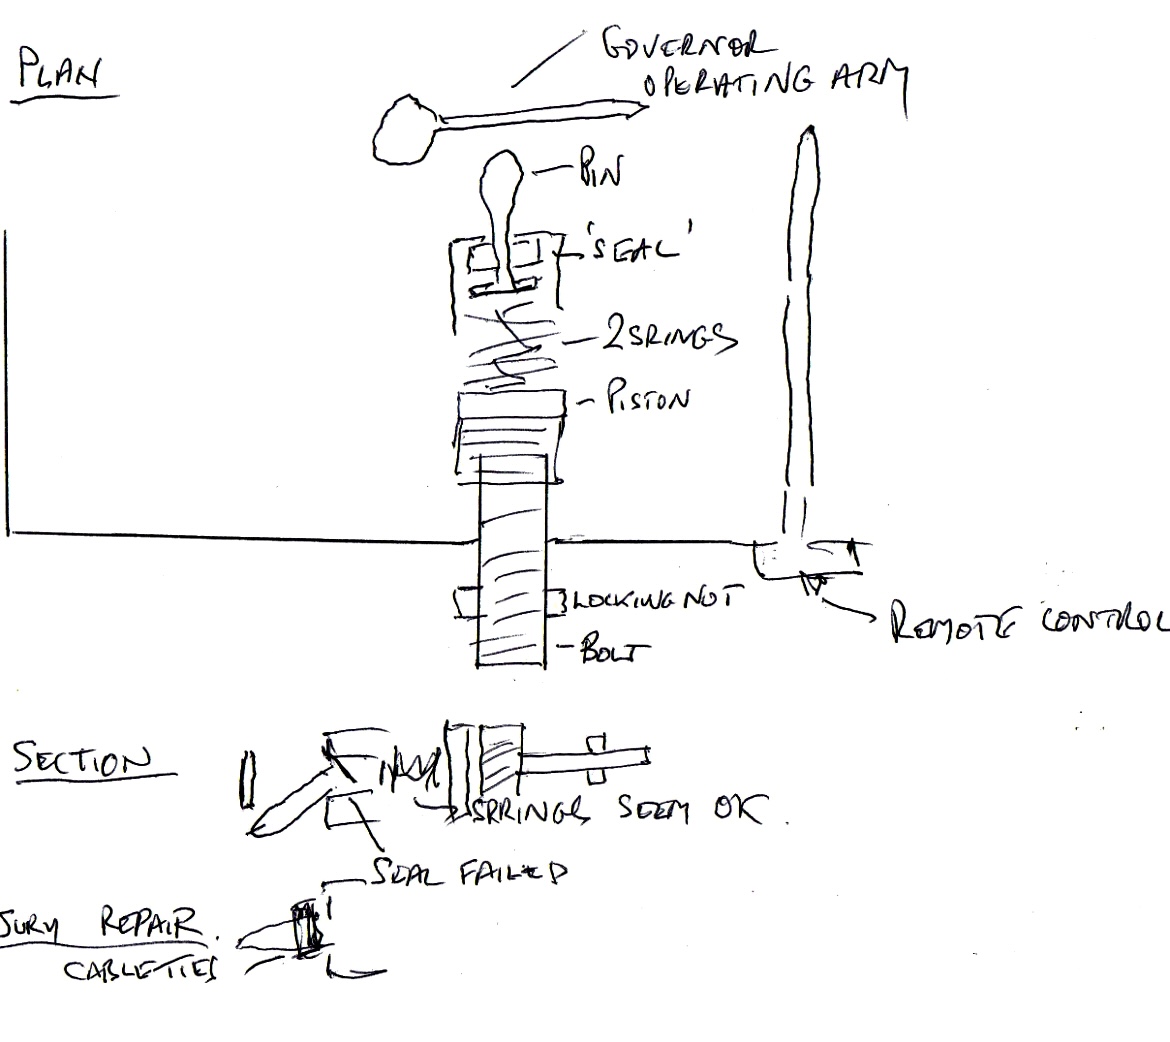 PLAN
GOVERNOR
OPERATING ARM
PIN
'SEAL'
2 SRINGS
PISTON
LOCKING NUT
BOLT
REMOTE CONTROL
SECTION
SPRINGS SEEM OK.
SEAL FAILED
JURY REPAIR.
CABLETIES